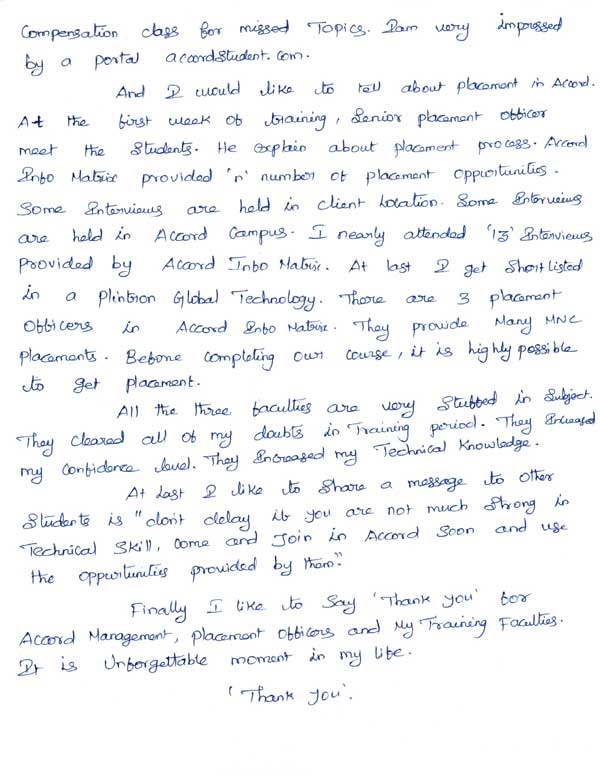 Compensation class for missed Topics. I am very impressed
by a portal accordstudent.com.
And I would like to tell about placement in Accord.
At the first week of training, Senior placement officer
meet the Students. He explain about placement process. Accord
Info Matrix provided 'n' number of placement opportunities.
Some Interviews are held in client location. Some Interviews
are held in Accord Campus. I nearly attended '13' Interviews
provided by Accord Info Matrix. At last I get Shortlisted
in a Plintron Global Technology. There are 3 placement
Officers in Accord Info Matrix. They provide Many MNC
placements. Before completing our course, it is highly possible
to get placement.
All the three faculties are very Stuffed in Subject.
They cleared all of my doubts in Training period. They Increased
my confidence level. They Increased my Technical Knowledge.
At last I like to Share a message to other
Students is "don't delay if you are not much Strong in
Technical Skill, Come and Join in Accord Soon and use
the opportunities provided by them."
Finally I like to Say 'Thank you' for
Accord Management, placement Officers and My Training Faculties.
It is Unforgettable moment in my life.
'Thank you'.